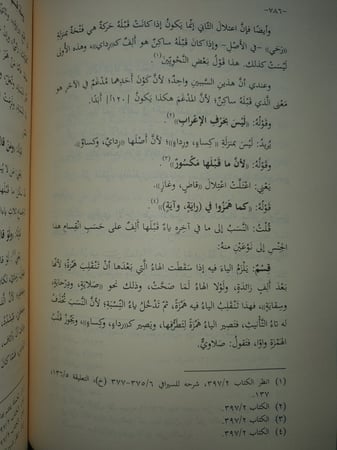 -٧٨٦-
وأيضًا فإنَّ اعتلالَ الثَّاني إنَّما يكونُ إذا كانتْ قَبْلَهُ حَرَكةٌ هي فَتْحةٌ بمنزلةِ
«رَحَيٍ» -في الأصْلِ- وإذا كانَ قَبْلَهُ ساكِنٌ هو ألِفٌ كـ«رِدايٍ»، وهذه الأُولى
لَيْسَتْ كذلك. هذا قَوْلُ بَعْضِ النَّحْوِيِّينَ(١).
وعندي أنَّ هذينِ السَّببينِ واحِدٌ؛ لأنَّ كَوْنَ أحَدِهِما مُدغَمٌ في الآخَرِ هو
مَعْنى الَّذي قَبْلَهُ ساكِنٌ؛ لأنَّ المُدْغَمَ هكذا يَكونُ [١٢٠أ] أبَدًا.
وقَوْلُهُ: «لَيْسَ بحَرْفِ الإعْرابِ»(٢).
يُرِيدُ: لَيسَ بمنزلةِ «كِساءٍ، ورِداءٍ»؛ لأنَّ أصْلَها «رِدايٌ، وكِساوٌ».
وقَوْلُهُ: «لأنَّ ما قَبْلَها مَكْسُورٌ»(٣).
يَعْني: اعْتَلَّتْ اعْتلالَ «قاضٍ، وغازٍ».
قَوْلُهُ: «كما هَمَزُوا في (رايةٍ، وآيةٍ)»(٤).
قُلْتُ: النَّسَبُ إلى ما في آخِرِهِ ياءٌ قَبْلَها ألِفٌ على حَسَبِ انْقِسامِ هذا
الجِنْسِ إلى نَوْعَيْنِ مِنْهُ:
قِسْمٌ: يَلْزَمُ الياءَ فيه إذا سَقَطَتِ الهاءُ الَّتي بَعْدَها أنْ تَنْقَلِبَ هَمْزةً؛ لأنَّها
بَعْدَ ألِفٍ زائدةٍ، ولَوْلا الهاءُ لَمَا صَحَّتْ، وذلك نحو «صَلايةٍ، ودِرْحايةٍ،
وسِقايةٍ»، فهذا تَنْقَلِبُ الياءُ فيه هَمْزةً، ثمَّ تَدْخُلُ ياءُ النِّسْبةِ؛ لأنَّ النَّسَبَ تُحْذَفُ
له تاءُ التَّأنيثِ، فتَصيرُ الياءُ هَمْزةً لتَطَرُّفِها، ويَصيرُ كـ«رِداءٍ، وكِساءٍ»، ويَجُوزُ قَلْبُ
الهَمْزةِ واوًا، فتَقولُ: صَلاوِيٌّ.
(١) انظر الكتاب ٣٩٧/٢، شرحه للسيرافي ٣٧٥/٦-٣٧٧ (خ)، التعليقة
١٣٧.
(٢) الكتاب ٣٩٧/٢.
(٣) الكتاب ٣٩٧/٢.
(٤) الكتاب ٣٩٧/٢.